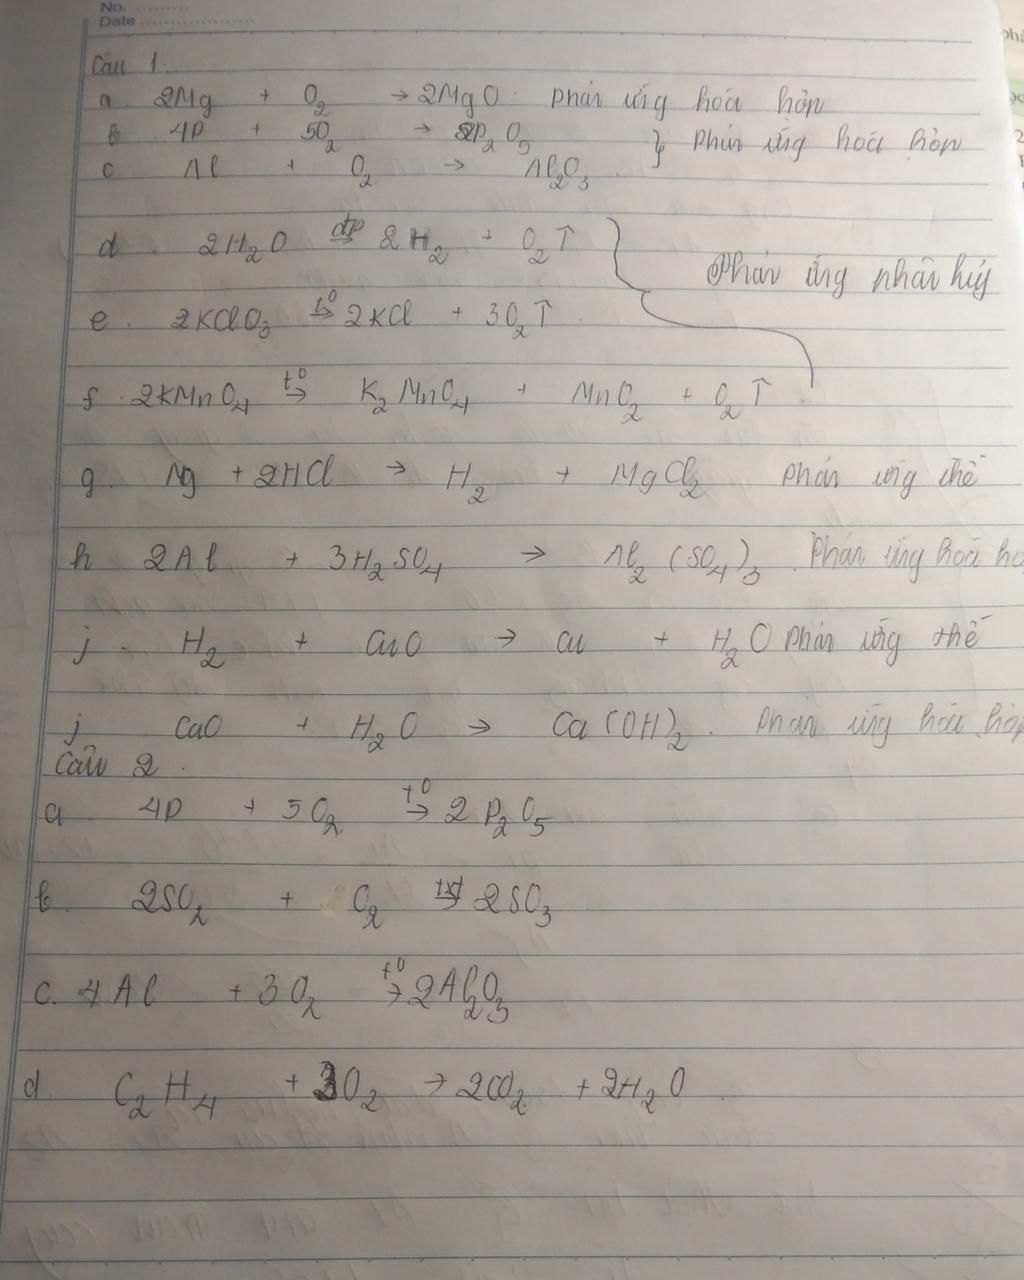 No. ........
Date ....................
Câu 1.
a 2Mg + O₂ → 2MgO. phản ứng hoá hợp
b 4P + 5O₂ → 2P₂O₅ } phản ứng hoá hợp
c Al + O₂ → Al₂O₃
d. 2H₂O đp→ 2H₂ + O₂↑
Phản ứng phân hủy
e. 2KClO₃ t⁰→ 2KCl + 3O₂↑
f. 2KMnO₄ t⁰→ K₂MnO₄ + MnO₂ + O₂↑
g. Mg + 2HCl → H₂ + MgCl₂ phản ứng thế
h 2Al + 3H₂SO₄ → Al₂(SO₄)₃. Phản ứng hoá
j. H₂ + CuO → Cu + H₂O phản ứng thế
j CaO + H₂O → Ca(OH)₂. phản ứng hoá hợp
Câu 2.
a 4P + 5O₂ t⁰→ 2P₂O₅
b. 2SO₂ + O₂ → 2SO₃
c. 4Al + 3O₂ t⁰→ 2Al₂O₃
d C₂H₄ + 3O₂ → 2CO₂ + 2H₂O